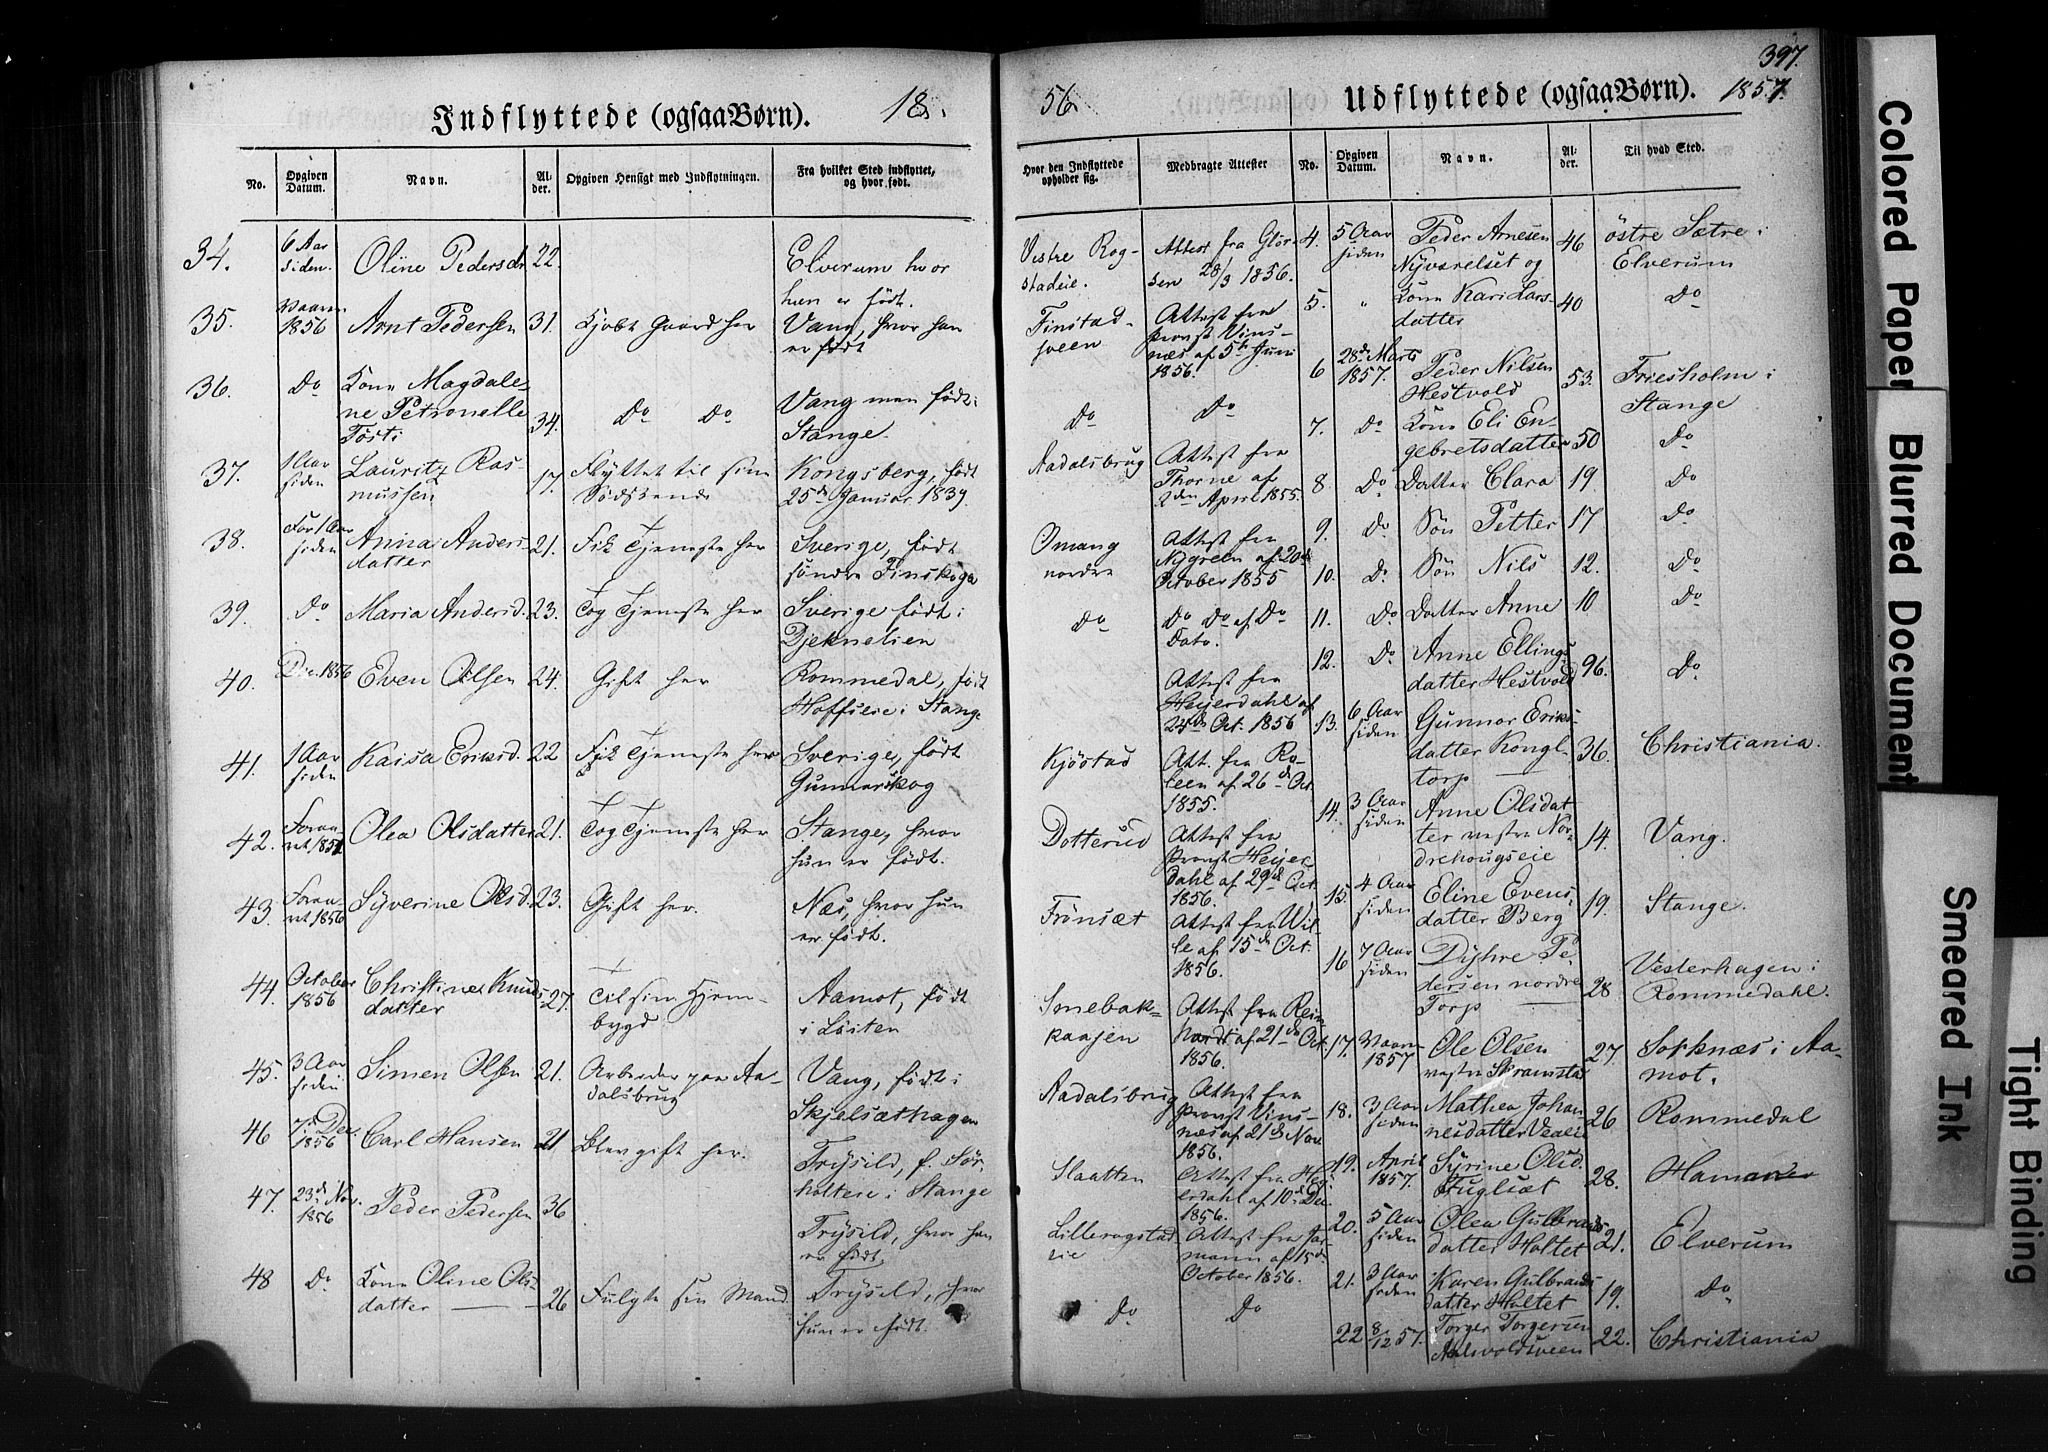 397.
Indflyttede (ogsaa Børn). 18
56
Udflyttede (ogsaa Børn). 1857.
No. | Opgiven Datum. | Navn. | Al-der. | Opgiven Hensigt med Indflytningen. | Fra hvilket Sted indflyttet, og hvor født. | Hvor den Indflyttede opholder sig. | Medbragte Attester
34. | 6 Aar siden. | Oline Pedersdr | 22. | | Elverum hvor hun er født. | Vestre Rog-stadeie. | Attest fra Glör-sen 28/3 1856.
35. | Vaaren 1856 | Arnt Pedersen | 31. | Kjøbt Gaard her | Vang, hvor han er født | Finstad-sveen | Attest fra Provst Vins-næs af 5te Juni 1856.
36. | Do | Kone Magdale-ne Petronelle Tosti | 34. | Do Do | Vang men født i Stange. | Do | Do
37. | 1 Aar siden | Lauritz Ras-mussen | 17. | Flyttet til sine Södskende | Kongsberg, født 25de Januar 1839. | Aadalsbrug | Attest fra Thorne af 2den April 1855.
38. | For 1 Aar siden | Anna Anders-datter | 21. | Fik Tjeneste her | Sverige, født söndre Finskoga | Omang nordre | Attest fra Nygreen af 20de October 1855
39. | Do | Maria Andersd. | 23. | Tog Tjeneste her | Sverige født i | Do | Do Do af Do Dato.
40. | Dec. 1856 | Even Olsen | 24. | Gift her | Rommedal, født Hoffseie i Stange | | Attest fra Heijerdahl af Oct. 1856
41. | 1 Aar siden | Kaisa Eriksd. | 22 | Fik Tjeneste her | Sverige, født Gunnarskog | Kjöstad | Att. fra Ro-leen af 26de Oct. 1855.
42. | Foraa-ret | Olea Olsdatter | 21. | Tog Tjeneste her | Stange, hvor hun er født. | Dotterud | Attest fra Provst Heijer-dahl af 29de Oct. 1856.
43. | Foraa-ret 1856 | Syverine Olsd. | 23. | Gift her. | Næs, hvor hun er født. | Frönsæt | Attest fra Wil-le af 15de Oct. 1856.
44. | October 1856 | Christine Knuds-datter | 27. | Til sin Hjem-bygd | Aamot, født i Löiten | Smebak-kaasen | Attest fra Rein-hardt af 21de Oct. 1856.
45. | 3 Aar siden | Simen Olsen | 21. | Arbeider paa Aa-dalsbrug | Vang, født i Skjelsæthagen | Aadalsbrug | Attest fra Provst Vins-næs af 21de Nov. 1856.
46 | 7de Dec. 1856 | Carl Hansen | 21 | Blev gift her. | Trysild, f. Sör-holteie i Stange | Slaatten | Attest fra Heij-erdahl af 10de Dec 1856.
47. | 23de Nov. 1856 | Peder Pedersen | 36 | | Trysild, hvor han er født | Lillerogstad eie | Attest fra Jar-mann af 15de October 1856.
48 | Do | Kone Oline Ols-datter | 26 | Fulgte sin Mand. | Trysild, hvor hun er født. | Do | Do
No. | Opgiven Datum. | Navn. | Al-der. | Til hvad Sted.
4. | 5 Aar siden | Peder Arnesen Nyvsrelset og | 46 | östre Sætre i Elverum
5. | " | Kone Kari Lars-datter | 40 | Do
6 | 28de Marts 1857. | Peder Nilsen Hestvold | 53. | Friesholm i Stange
7. | Do | Kone Eli En-gebretsdatter | 50 | Do
8 | Do | Datter Clara | 19. | Do
9. | Do | Sön Petter | 17 | Do
10. | Do | Sön Nils | 12. | Do
11. | Do | Datter Anne | 10 | Do
12. | Do | Anne Ellings-datter Hestvold | 96. | Do
13. | 6 Aar siden | Gunnor Eriks-datter Kongl-torp | 36. | Christiania.
14. | 3 Aar siden | Anne Olsdat-ter vestre Nor-drehougseie | 14. | Vang.
15. | 4 Aar siden | Eline Evens-datter Berg | 19. | Stange.
16 | 7 Aar siden | Dyhre Pe-dersen nordre Torp | 28 | Vesterhagen i Rommedahl.
17. | Vaaren 1857 | Ole Olsen vestre Skramstad | 27. | Sorknæs i Aa-mot.
18. | 3 Aar siden | Mathea Johan-nesdatter | 26 | Rommedal
19. | April 1857. | Syrine Olsd. Fuglsæt | 28. | Hamar
20. | 5 Aar siden | Olea Gulbrands-datter Holtet | 21. | Elverum
21. | 3 Aar siden | Karen Gulbrands-datter Holtet | 19. | Do
22 | 8/12 57. | Torger Torgersen | 22. | Christiania
Colored Paper
Blurred Document
Smeared Ink
Tight Binding